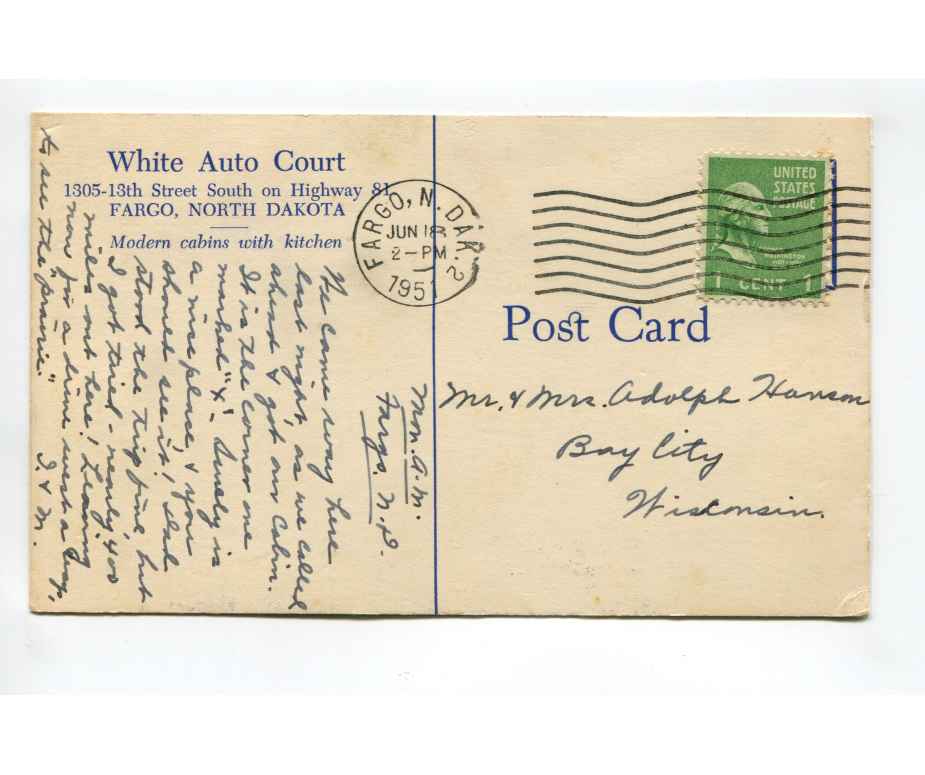 White Auto Court
1305-13th Street South on Highway 81
FARGO, NORTH DAKOTA
Modern cabins with kitchen
FARGO, N. DAK. 2
JUN 18
2-PM
1951
UNITED
STATES
POSTAGE
WASHINGTON
1 CENT 1
Post Card
Mr. & Mrs. Adolph Hanson
Bay City
Wisconsin.
Mon. A.M.
Fargo, N.D.
We came way here
last night, as we called
ahead & got our cabin.
It is the corner one
marked "x". Surely is
a nice place & you
should see it! Dad
stood the trip fine, but
I got tired - nearly 400
miles out here! Leaving
now for a drive west a
to see the "prairie."
& M.